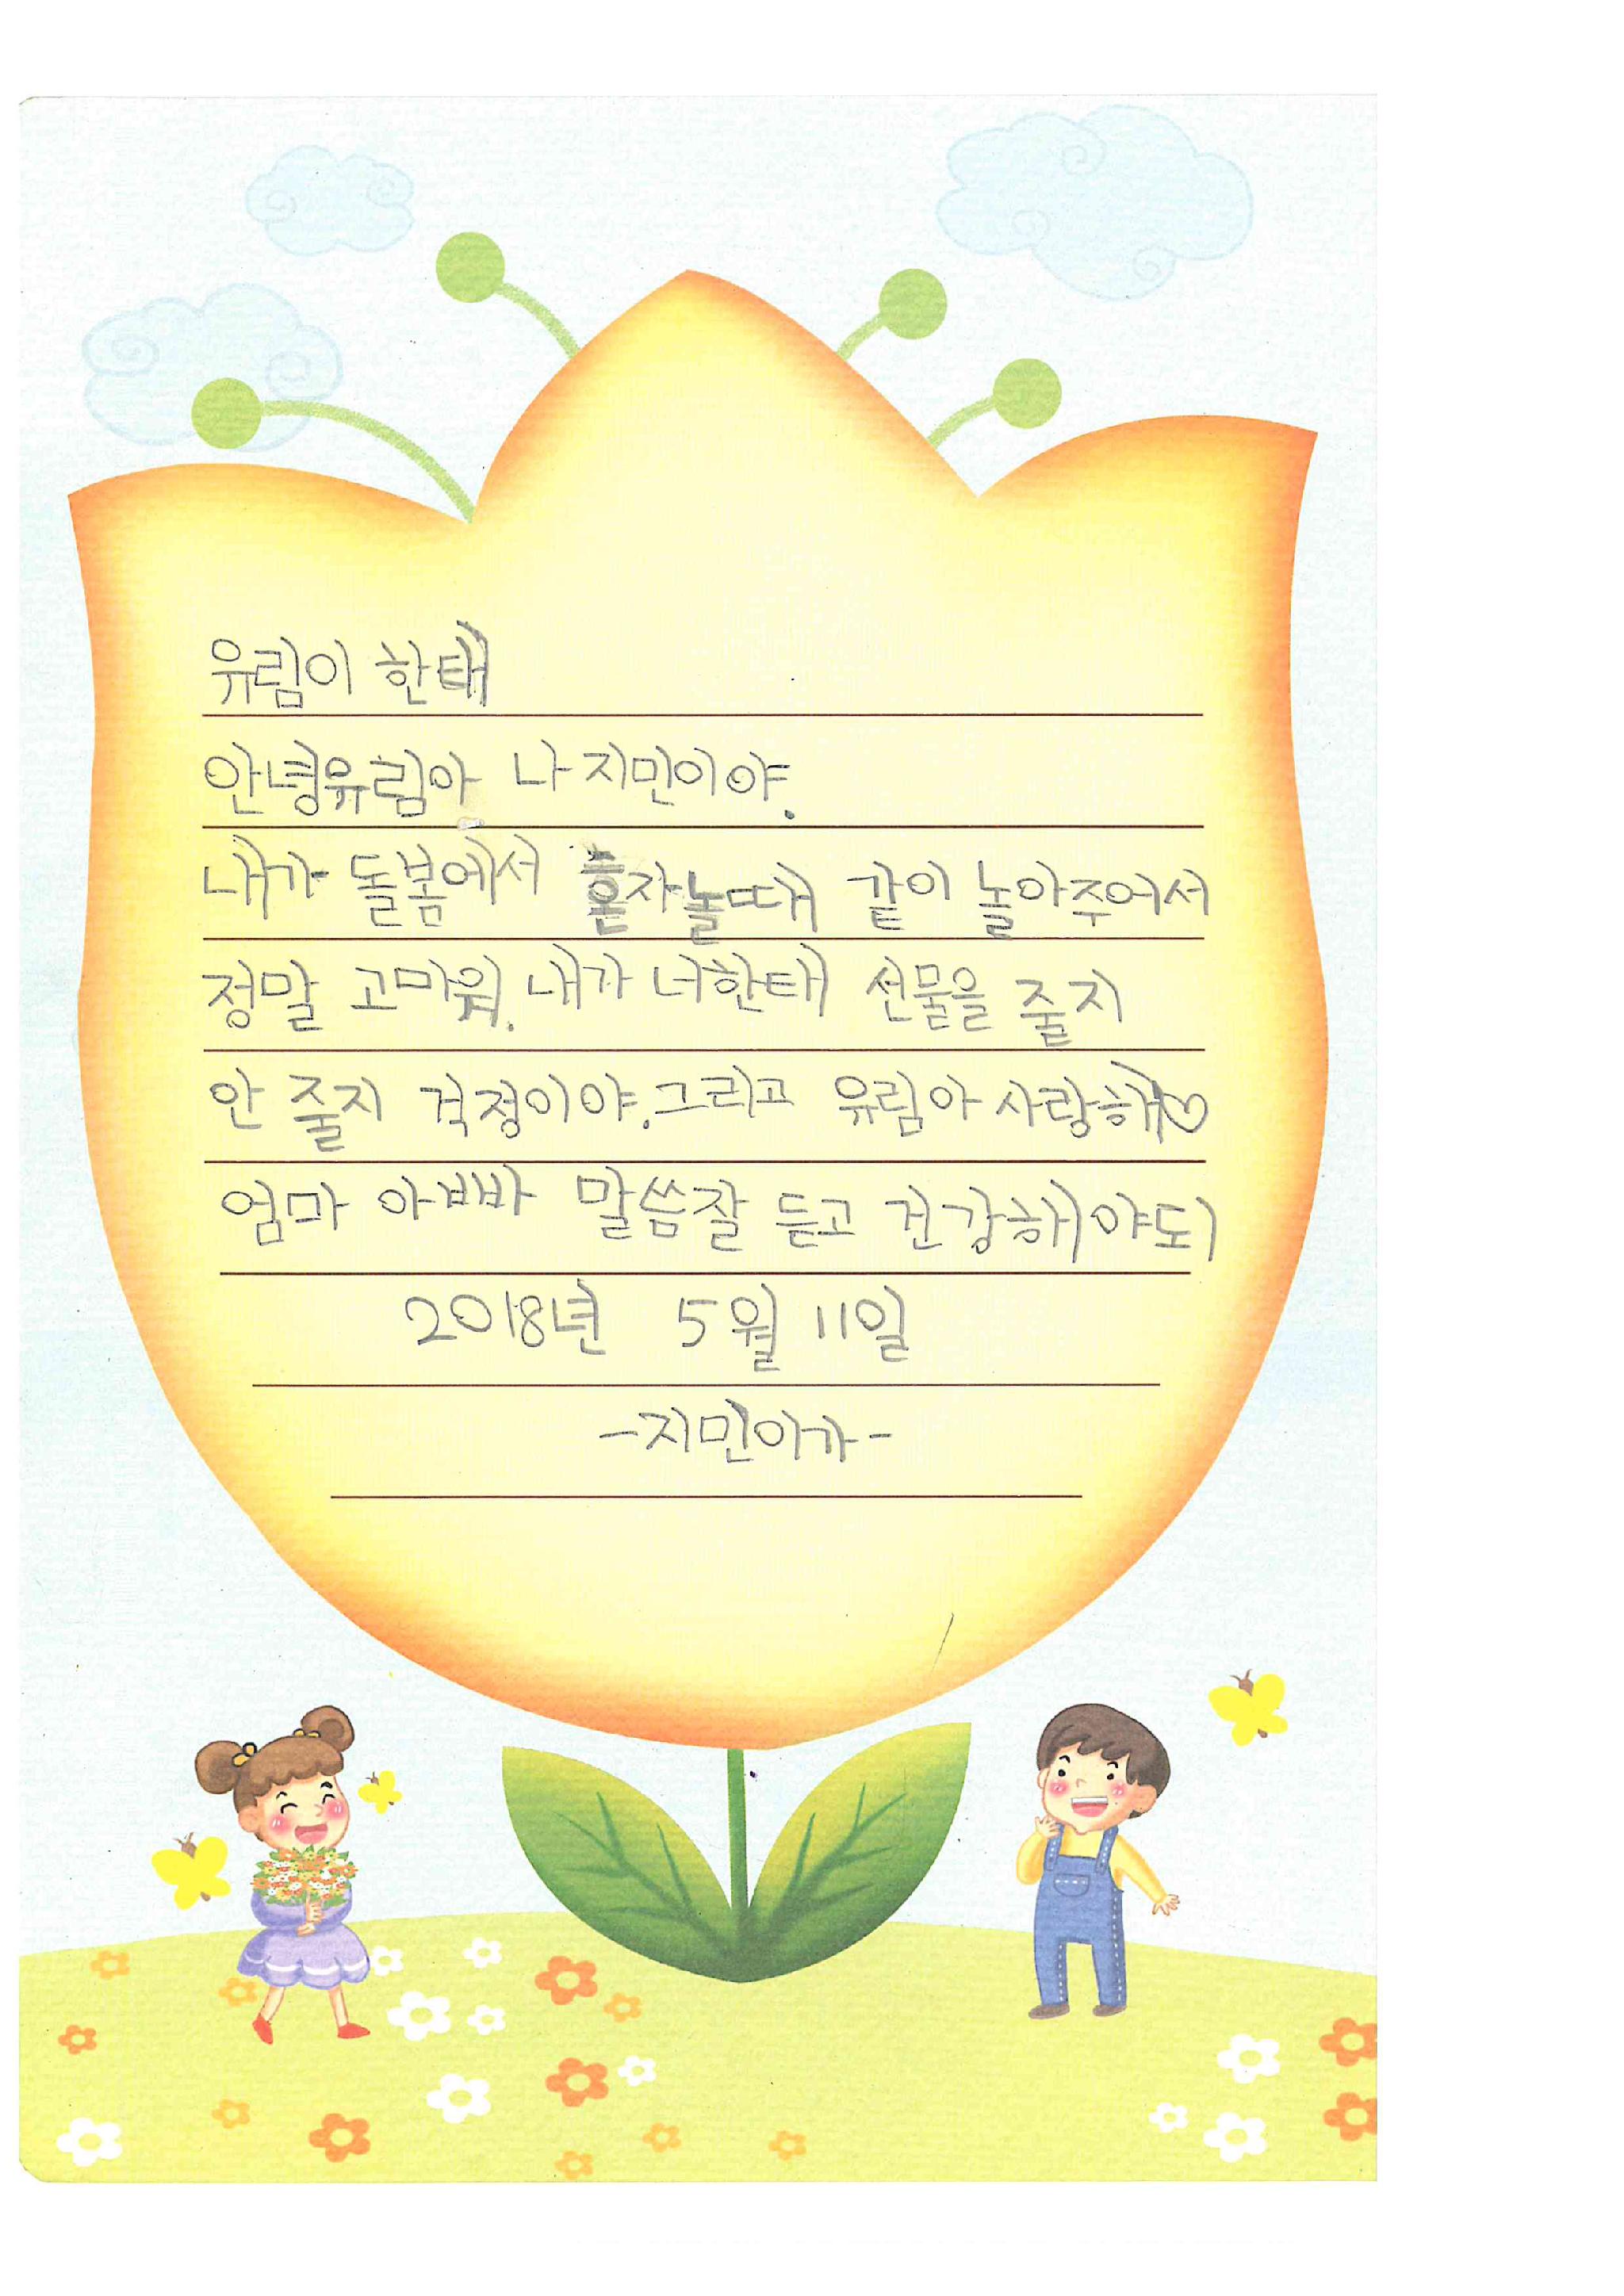 유림이 한태
안녕유림아 나 지민이야.
내가 돌봄에서 혼자놀때 같이 놀아주어서
정말 고마워. 내가 너한태 선물을 줄지
안 줄지 걱정이야. 그리고 유림아 사랑해♡
엄마 아빠 말씀잘 듣고 건강해야되
2018년 5월 11일
-지민이가-